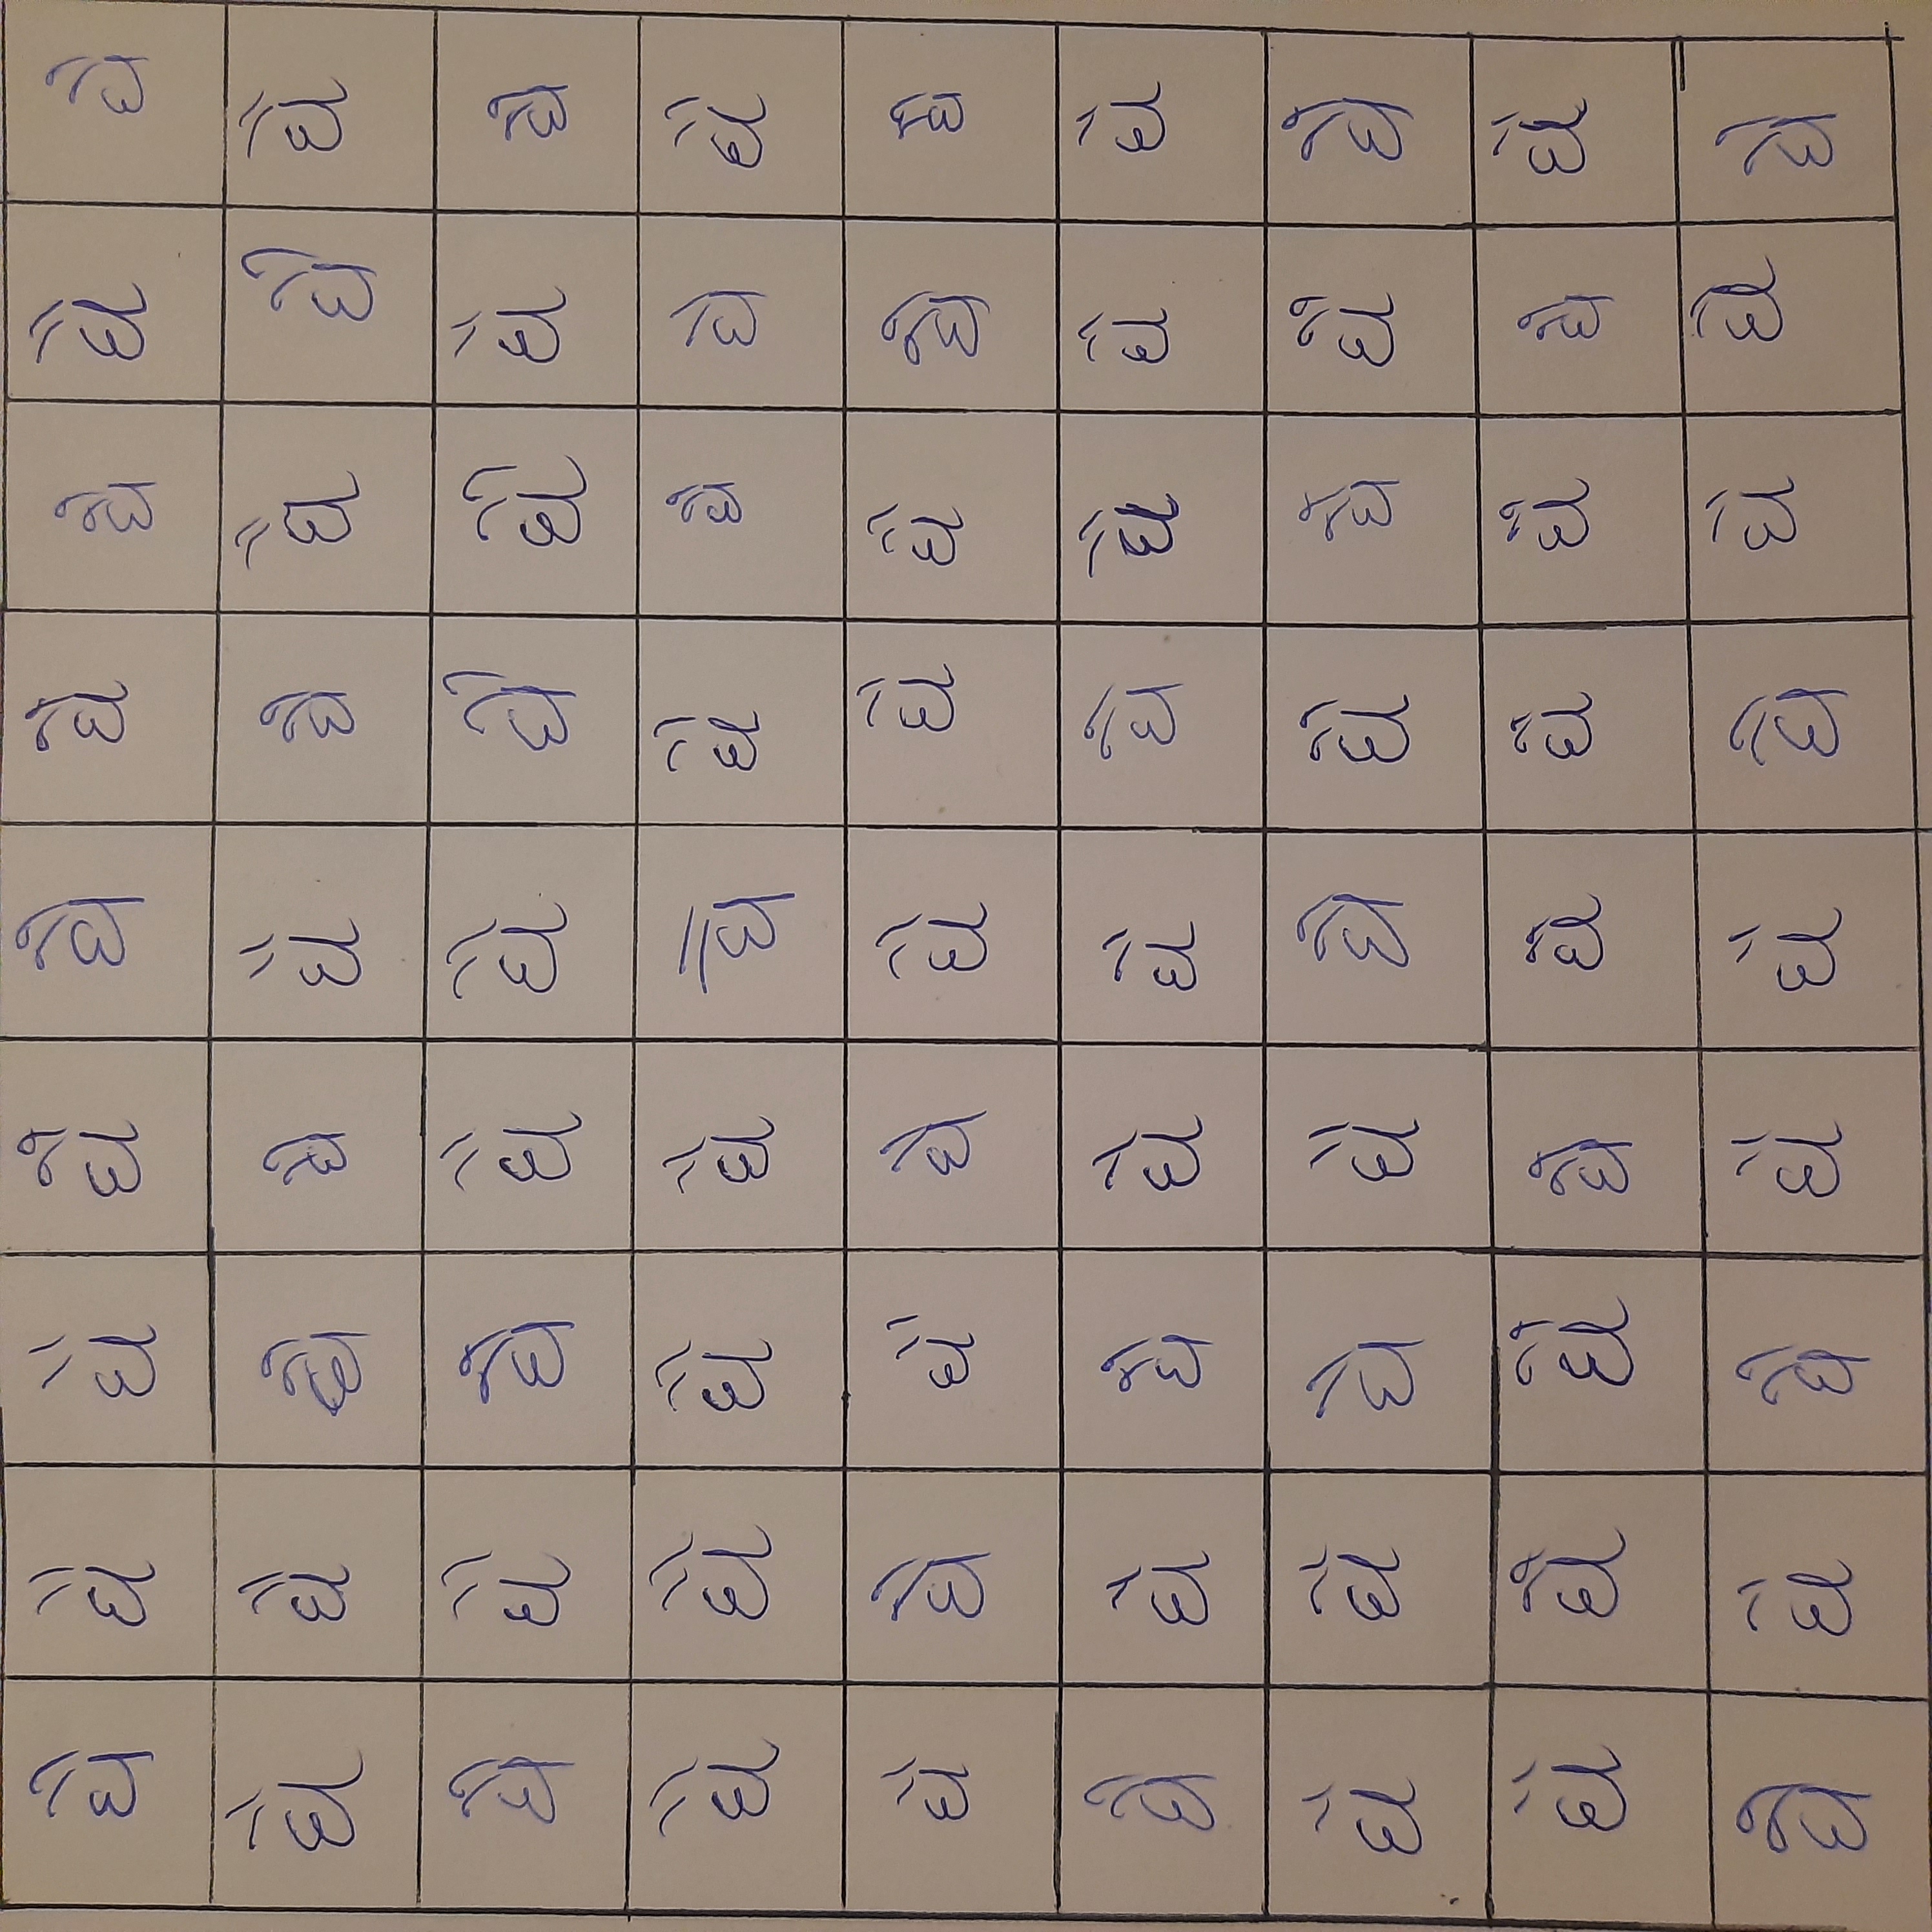 ઘૈ ઘૈ ઘૈ ઘૈ ઘૈ ઘૈ ઘૈ ઘૈ ઘૈ
ઘૈ ઘૈ ઘૈ ઘૈ ઘૈ ઘૈ ઘૈ ઘૈ ઘૈ
ઘૈ ઘૈ ઘૈ ઘૈ ઘૈ ઘૈ ઘૈ ઘૈ ઘૈ
ઘૈ ઘૈ ઘૈ ઘૈ ઘૈ ઘૈ ઘૈ ઘૈ ઘૈ
ઘૈ ઘૈ ઘૈ ઘૈ ઘૈ ઘૈ ઘૈ ઘૈ ઘૈ
ઘૈ ઘૈ ઘૈ ઘૈ ઘૈ ઘૈ ઘૈ ઘૈ ઘૈ
ઘૈ ઘૈ ઘૈ ઘૈ ઘૈ ઘૈ ઘૈ ઘૈ ઘૈ
ઘૈ ઘૈ ઘૈ ઘૈ ઘૈ ઘૈ ઘૈ ઘૈ ઘૈ
ઘૈ ઘૈ ઘૈ ઘૈ ઘૈ ઘૈ ઘૈ ઘૈ ઘૈ